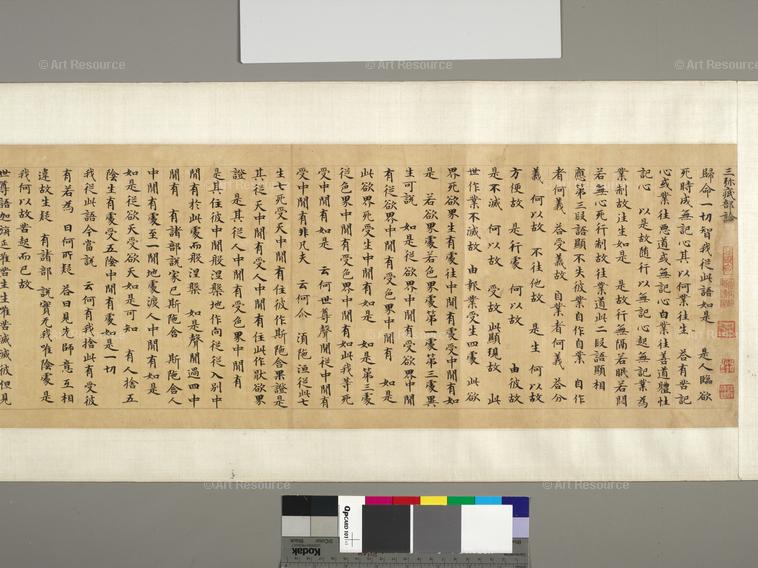 三弥底部論
歸命一切智我從此語如是 是人臨欲
死時成無記心其以何業往生 答有善記
心或業往惡道或無記心白業往善道體性
記心 以是故隨行以無記心起無記業為
業制故往生如是 是故行無隔若眠若悶
若無心死行制故往業道此二段語顯相
應第三段語顯不失彼業自作自業 自作
者何義 答受義故 自業者何義 答分
義 何以故 不往他故 是生 何以故
方便故 是行處 何以故 由彼故
是不滅 何以故 受故 此顯現故 此
世作業不滅故 由報業受生四處 此欲
界死欲界生有處往中間有處受中間有如
是 若欲界處若色界處第一處第三處異
生可說 如是從欲界中間有受欲界中間
有從欲界中間有受色界中間有 如是
此欲界死受生中間有如是 如是第三處
從色界中間有受色界中間有如此我等死
受中間有如是 云何世尊聲聞從中間有
受中間有非凡夫 云何尒 湏陁洹從此七
生七死受天中間有住彼作斯陁含果證是
其從天中間有受人中間有住此作猒欲界
證 是其從人中間有受色界中間有
是其住彼中間般涅槃地作向從從入別中
間有於此處而般涅槃 如是聲聞過四中
間有 有諸部說家已斯陁含 斯陁含人
中間有處至一間地處渡人中間有如是
如是從欲天受欲天如是可知 有人捨五
陰生有處受五陰中間有處如是一切
我從此語今當說 云何有我捨此有受彼
有若為 曰何所疑 答曰見先師意互相
違故生疑 有諸部說實无我唯陰處是
我何以故答起而已故
世尊語迦旃延唯苦生生唯苦滅滅彼但見
© Art Resource
© Art Resource
© Art Resource
© Art Resource
© Art Resource
© Art Resource
Opcard 101
Kodak